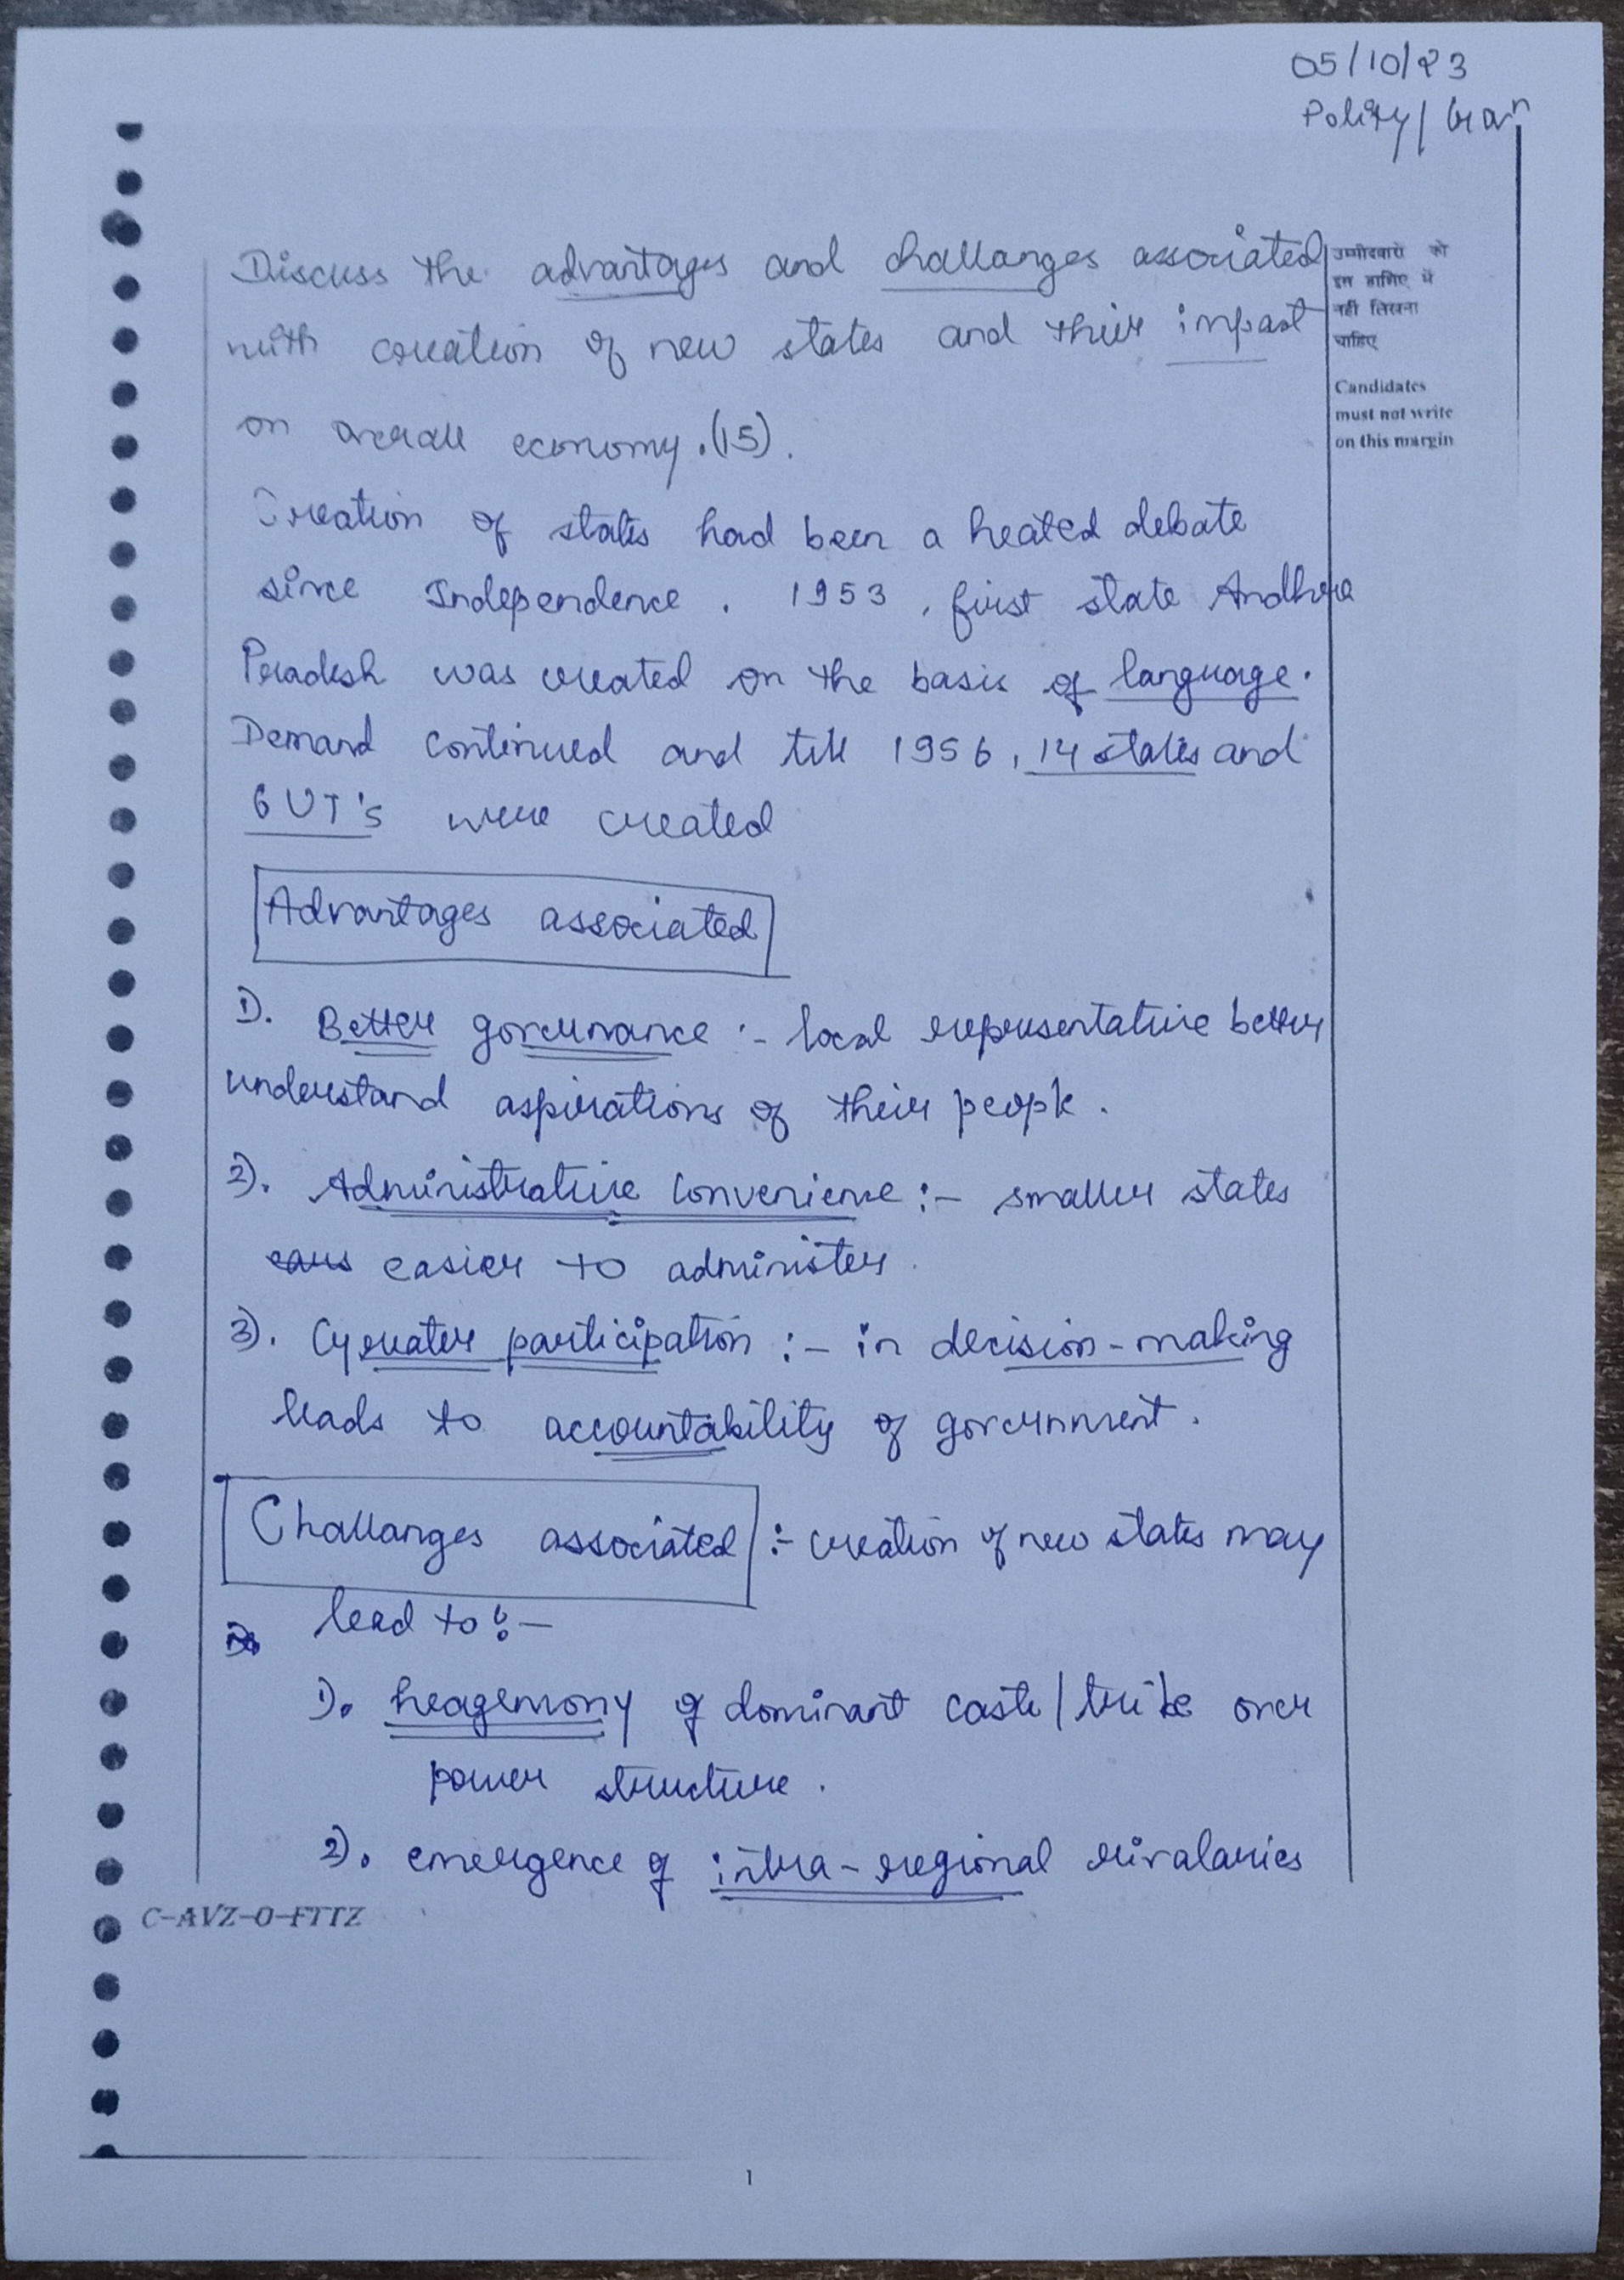 05/10/23
Polity/ Gran
Discuss the advantages and challanges associated
with creation of new states and their impact
on overall economy.(15).
उम्मीदवारों को
इस हाशिए में
नहीं लिखना
चाहिए
Candidates
must not write
on this margin
Creation of states had been a heated debate
since Independence. 1953, first state Andhra
Pradesh was created on the basis of language.
Demand continued and till 1956, 14 states and
6 UT's were created
Advantages associated
1). Better governance :- local representative better
understand aspirations of their people.
2). Administrative convenience :- smaller states
easier to administer.
3). Greater participation :- in decision-making
leads to accountability of government.
Challanges associated :- creation of new states may
lead to :-
1). heagemony of dominant caste/tribe over
power structure.
2). emergence of intra-regional rivalaries
C-AVZ-O-FTTZ
1